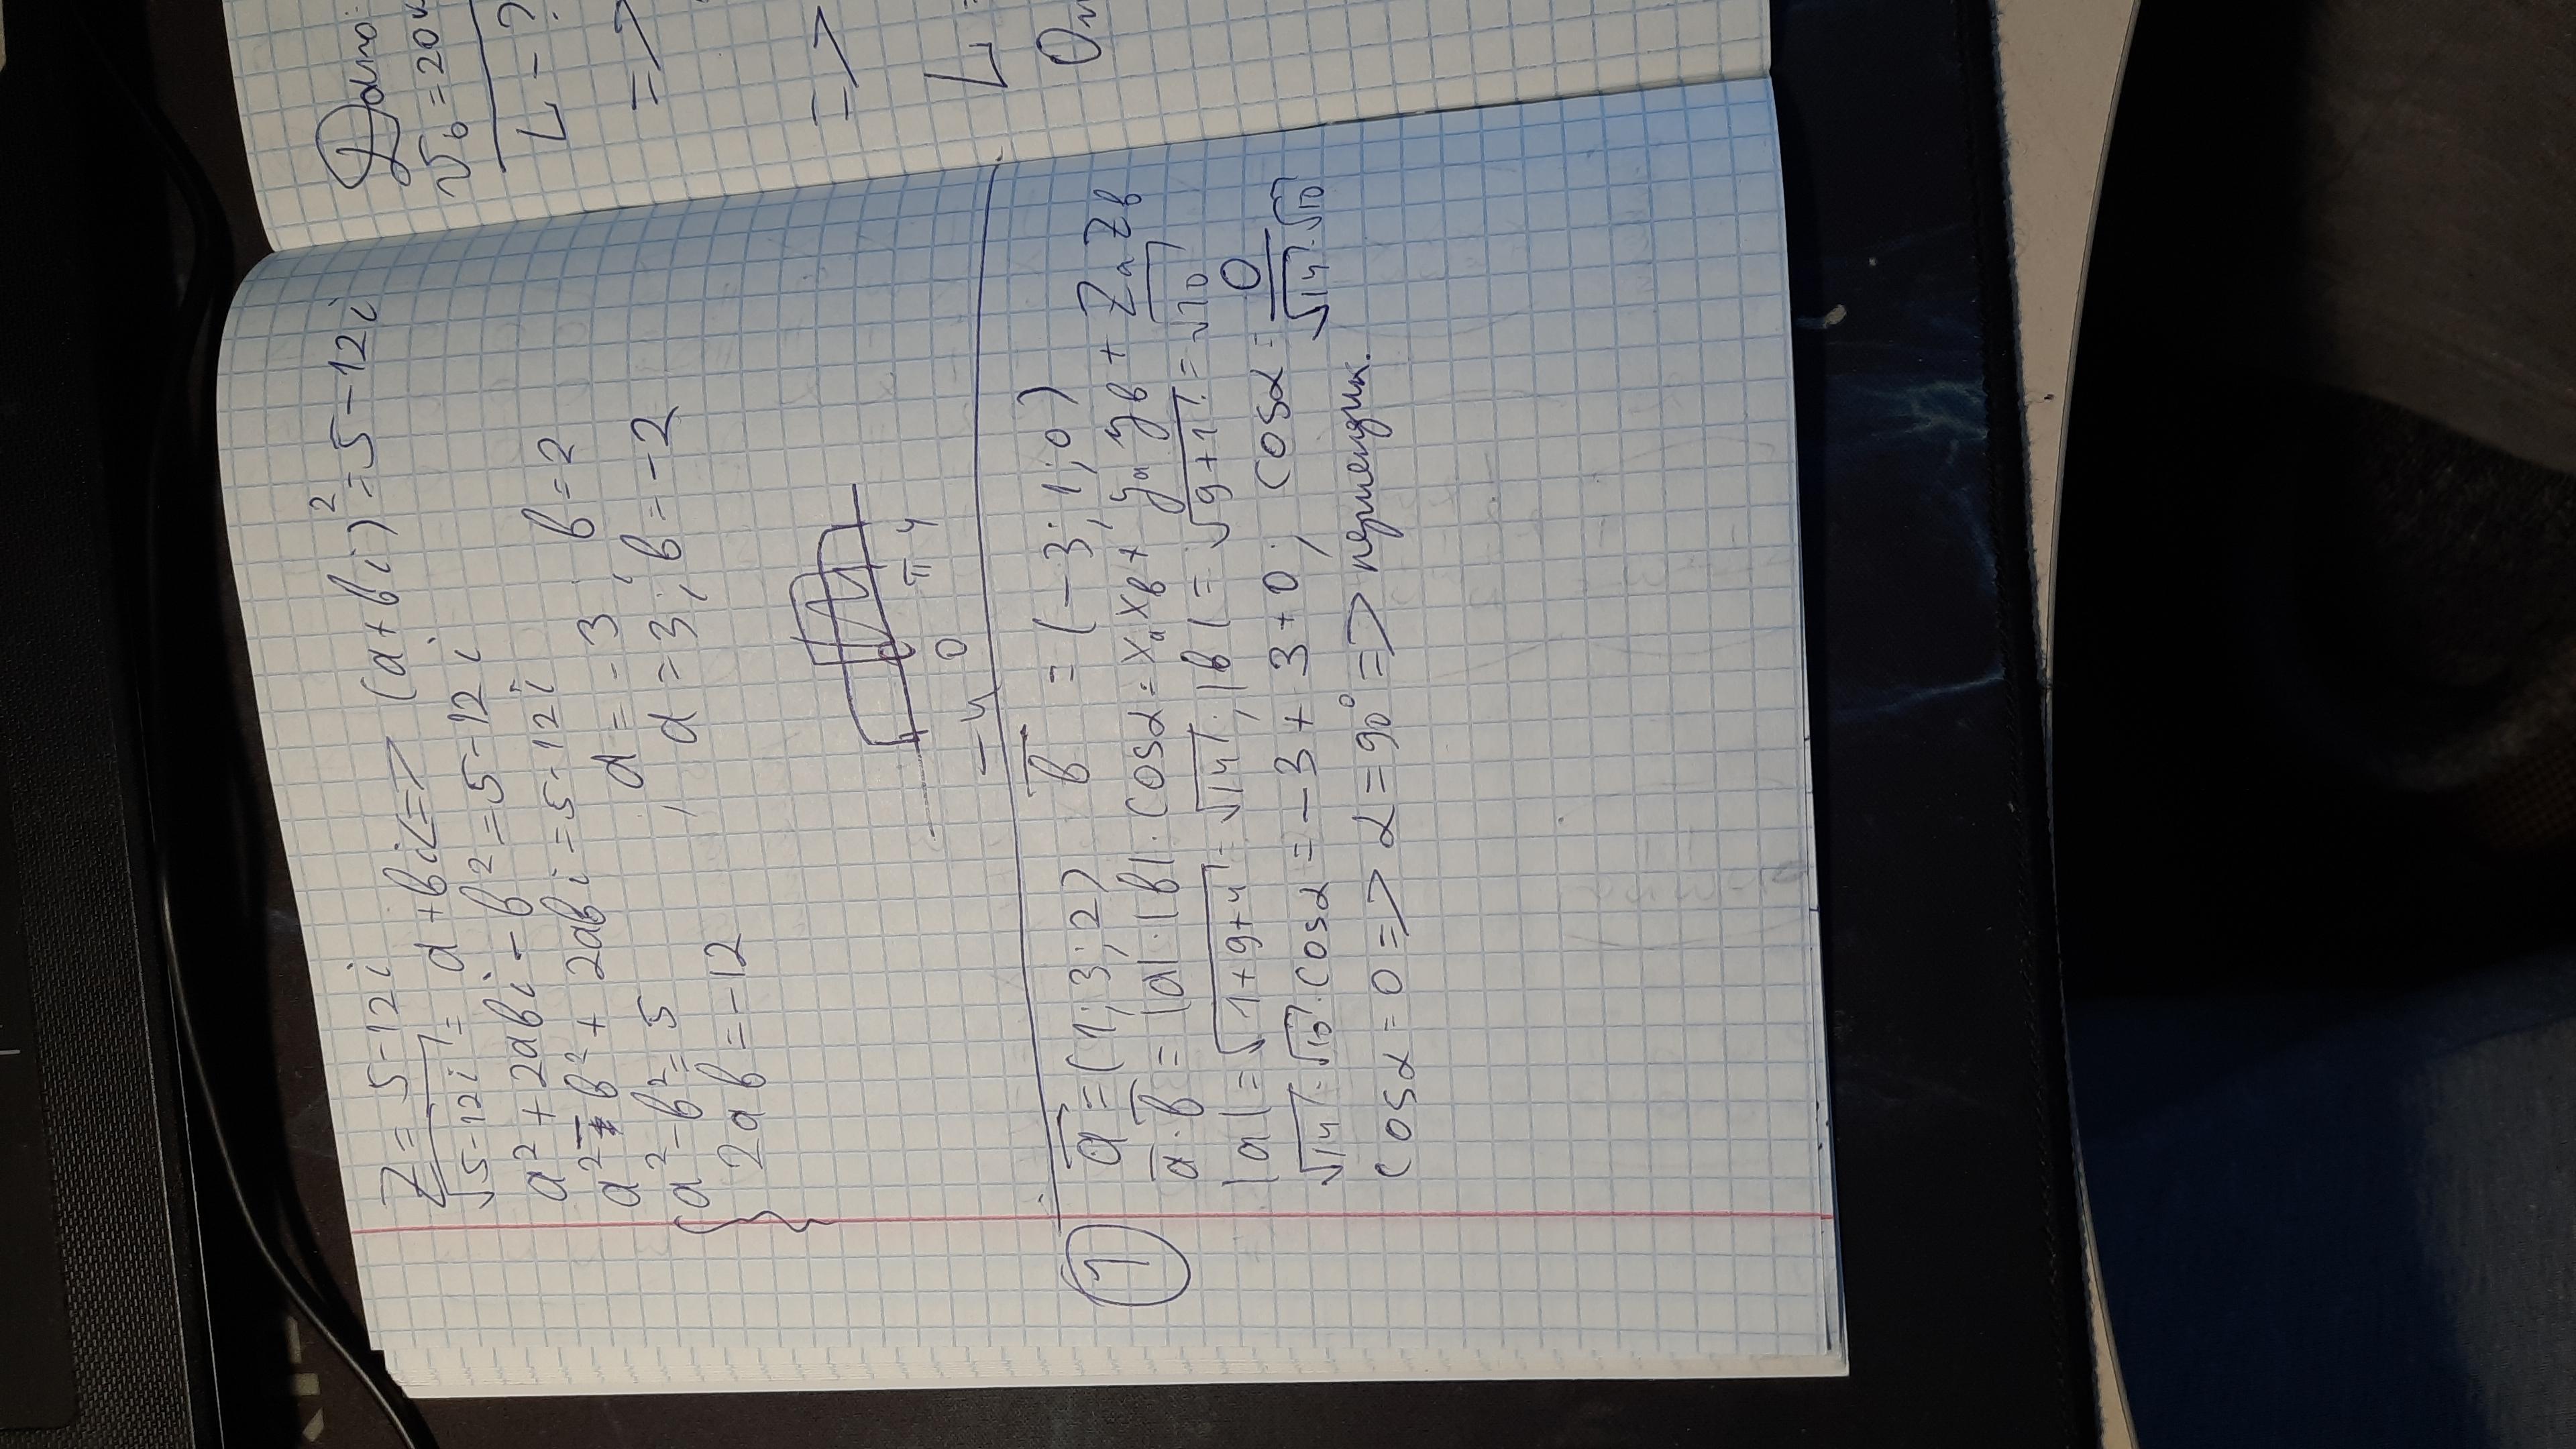 Z = 5-12i
√5-12i = a+bi <=> (a+bi)² = 5-12i
a² + 2abi - b² = 5-12i
a² - b² + 2abi = 5-12i
{ a² - b² = 5
2ab = -12
a = -3; b = 2
a = 3; b = -2
-4 0 π 4
① a = (1; 3; 2) b = (-3; 1; 0)
a · b = |a| · |b| · cosα = xₐx_b + yₐy_b + zₐz_b
|a| = √1+9+4 = √14; |b| = √9+1 = √10
√14 · √10 · cosα = -3+3+0; cosα = 0/√14·√10
cosα = 0 => α = 90° => перпендик.
Дано:
V₀ = 20
L - ?
=>
=>
L =